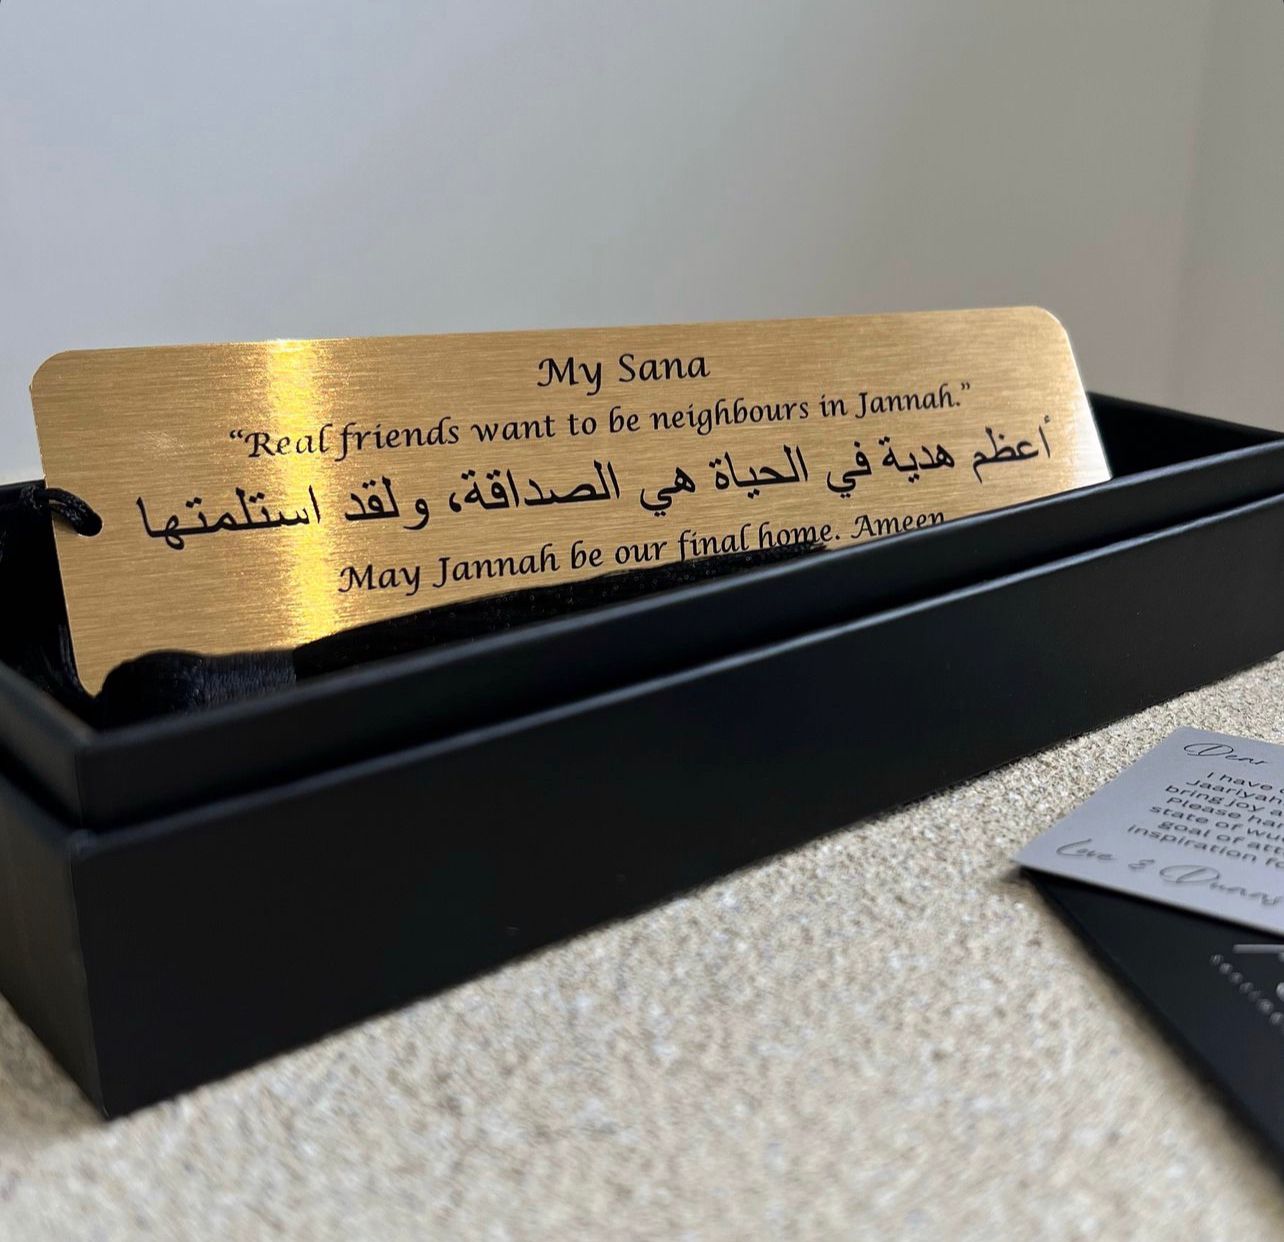 My Sana
“Real friends want to be neighbours in Jannah.”
أعظم هدية في الحياة هي الصداقة، ولقد استلمتها
May Jannah be our final home. Ameen
Dear
I have
Jaariyah
bring joy a
please han
state of wu
goal of att
inspiration fo
Love & Duaas